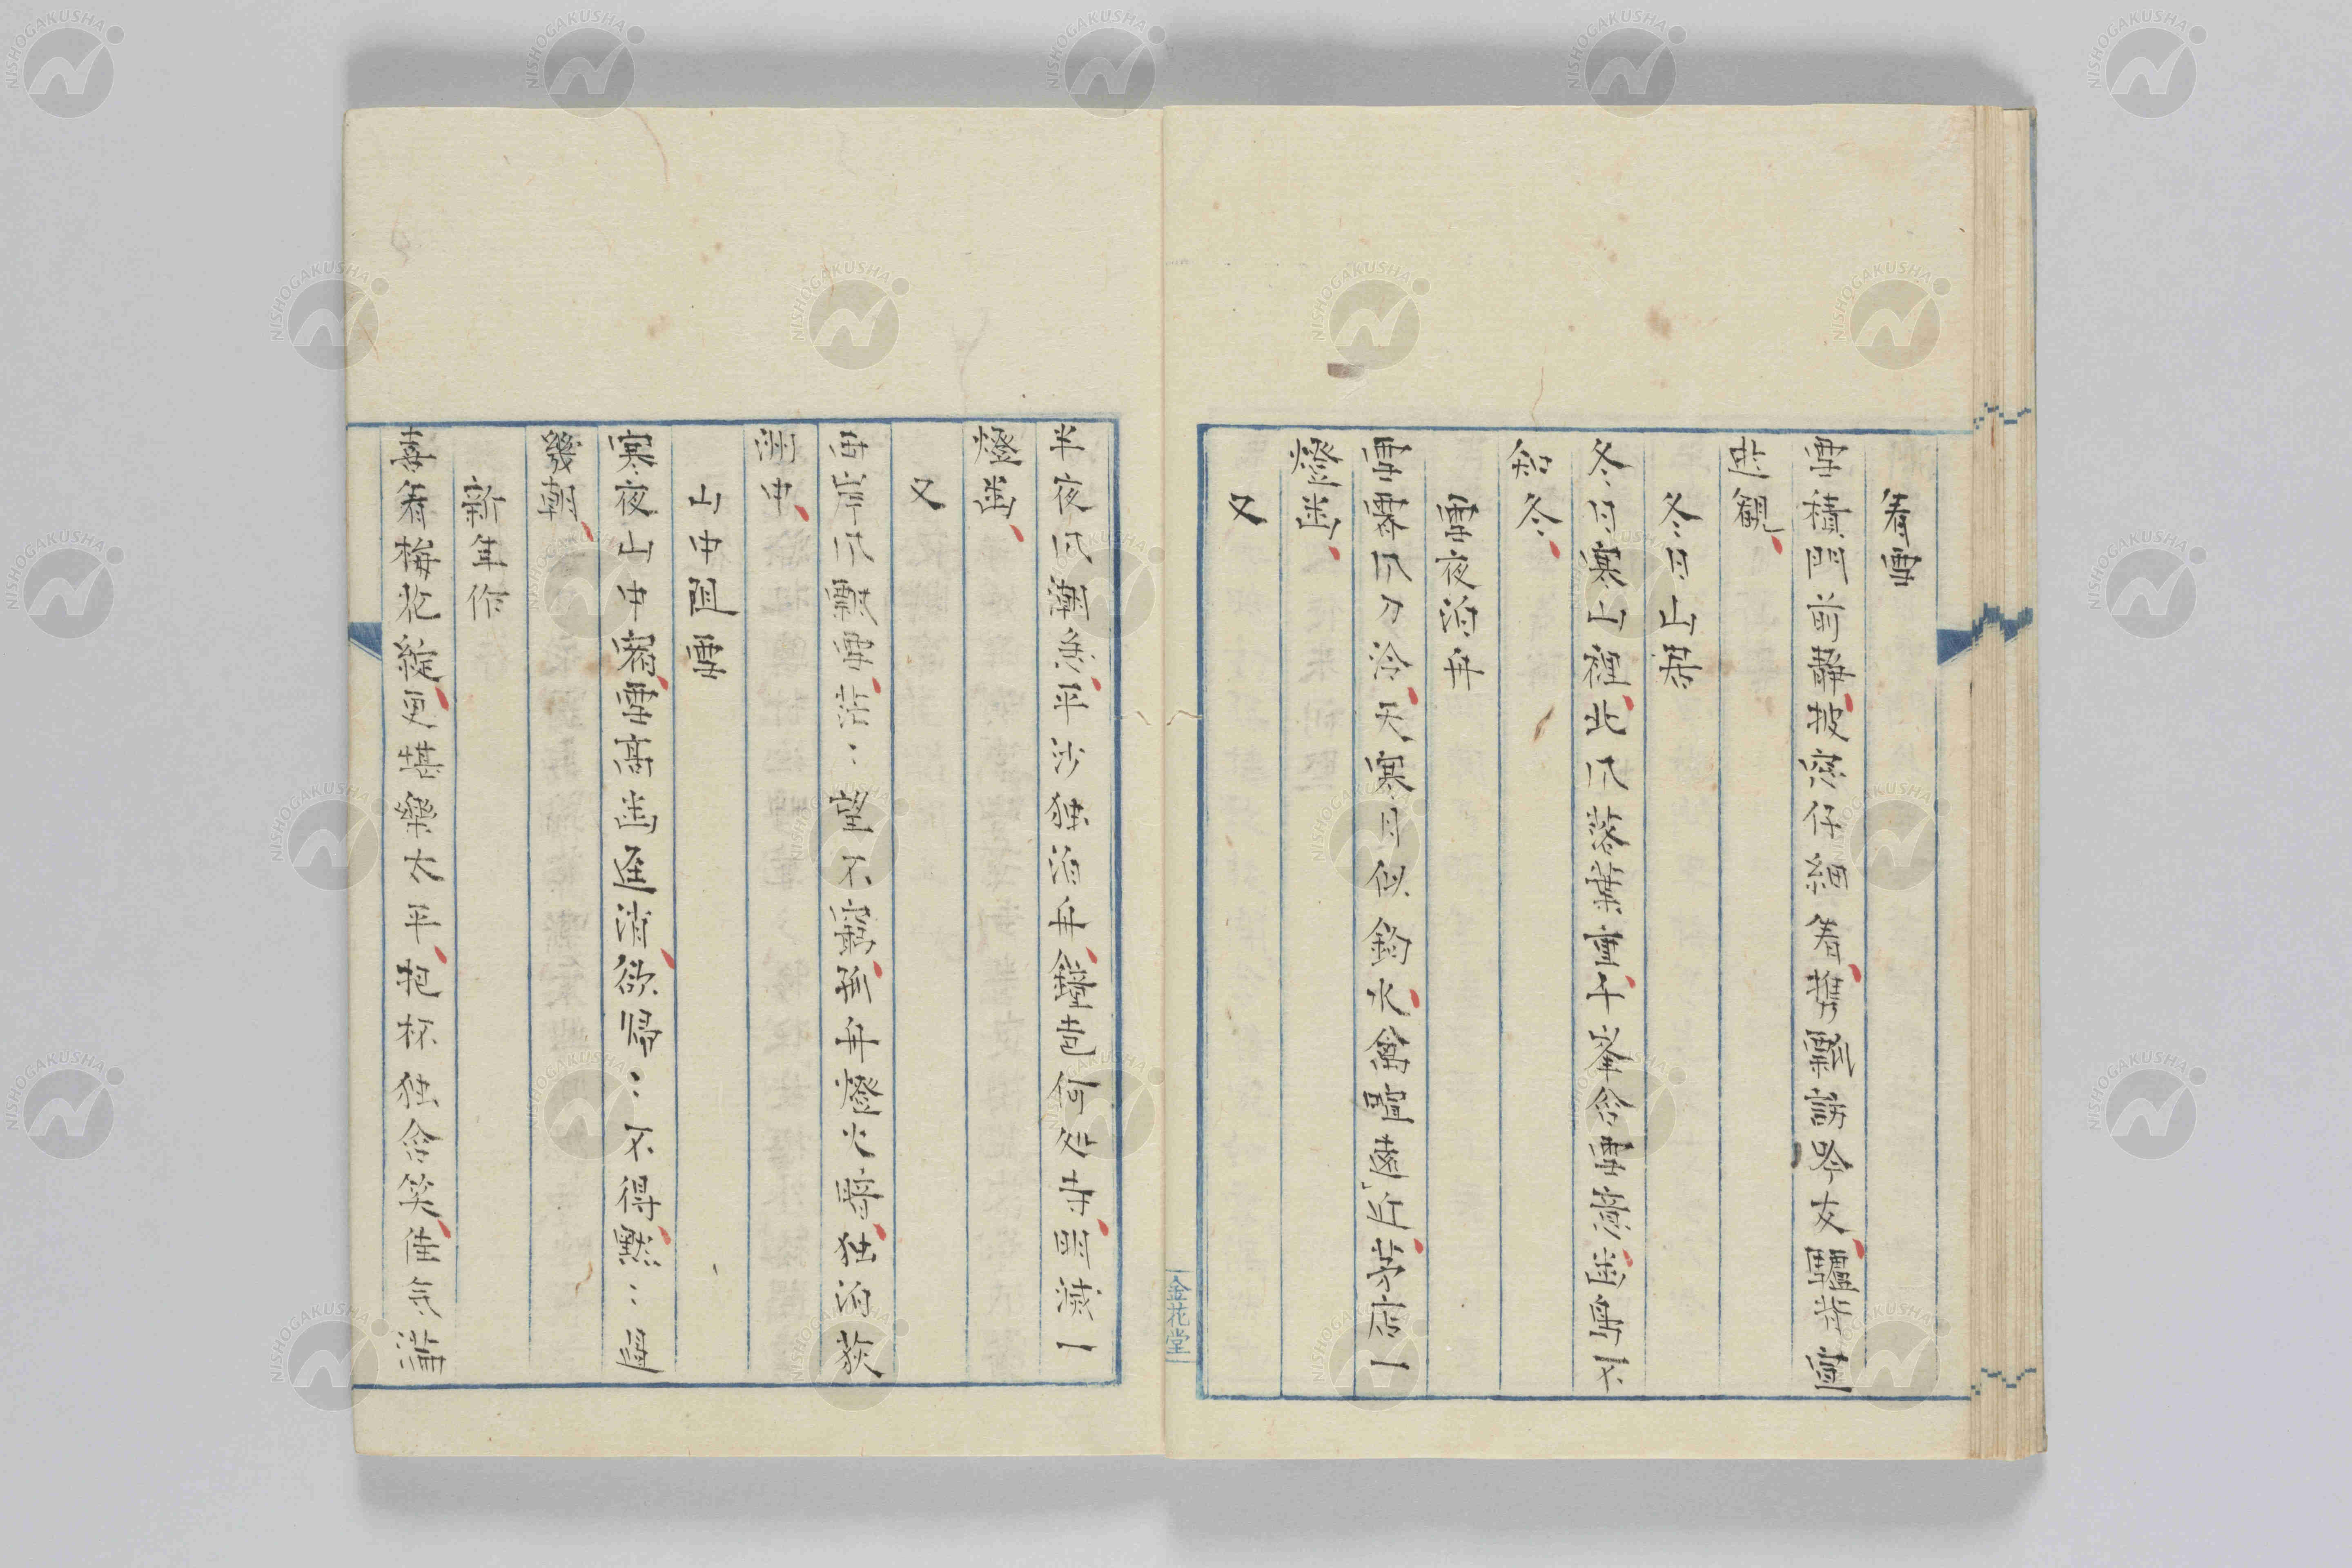 看雪
雪積門前靜披窓仔細看携瓢訪吟友驢背宜
此觀
冬日山居
冬日寒山裡北风落葉重千峯含雪意幽鳥不
知冬
雪夜泊舟
雪霽风刀冷天寒月似鈎水禽喧遠近茅店一
燈幽
又
金花堂
半夜风潮急平沙独泊舟鐘声何处寺明滅一
燈幽
又
兩岸风飄雪茫〻望不窮孤舟燈火暗独泊荻
洲中
山中阻雪
寒夜山中宿雪高幽徑消欲帰〻不得默〻過
幾朝
新年作
喜看梅花綻更堪樂太平抱杯独含笑佳気滿
NISHOGAKUSHA